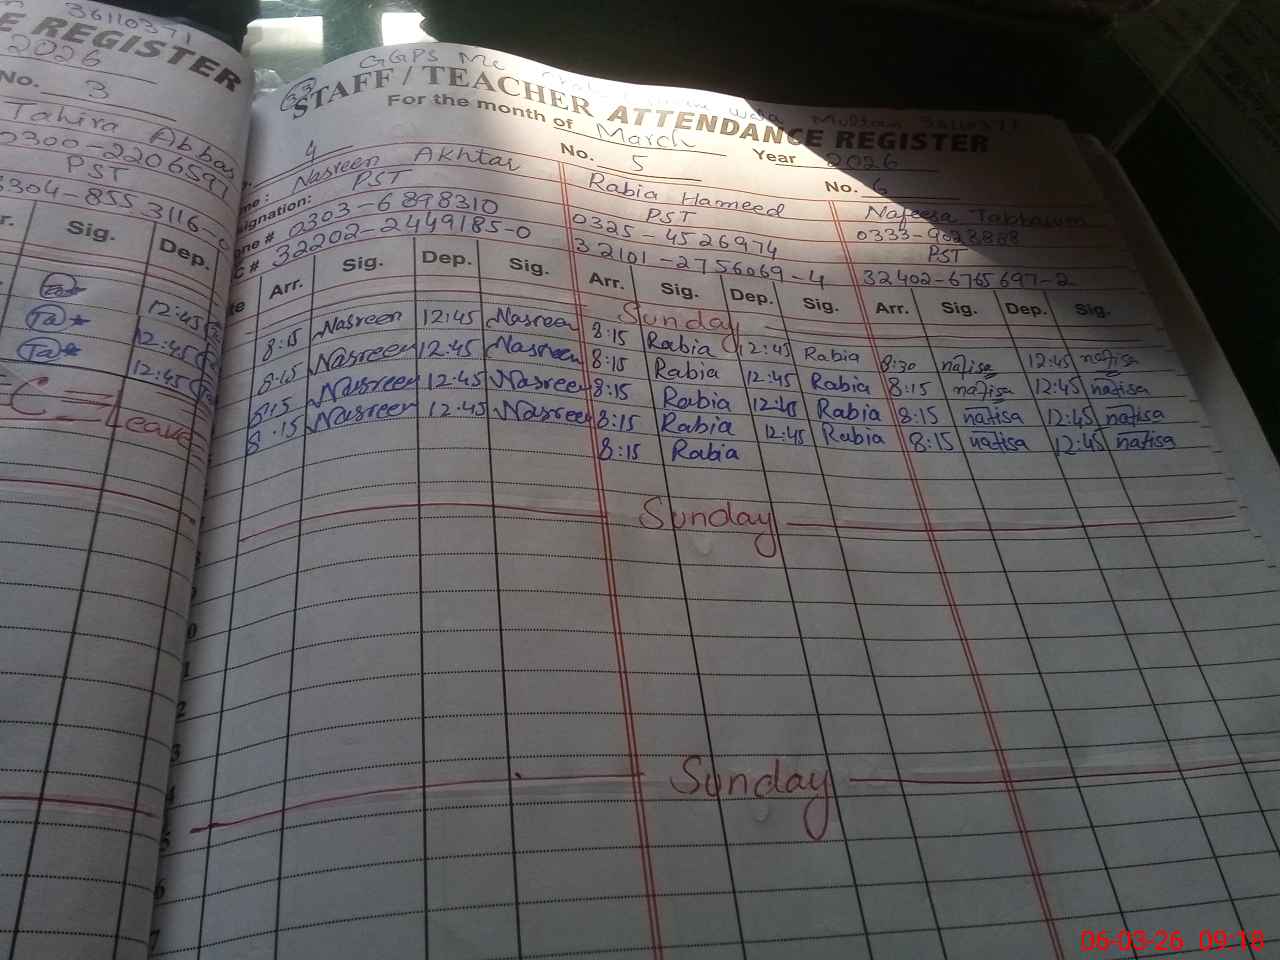 36110371
E REGISTER
2026
No. 3
Tahira Abbas
0300-2206591
PST
3304-8553116-
Sig. Dep.
12:45
Ta 12:45
Ta 12:45
C = Leave
GGPS Mc Multan 36110371
STAFF / TEACHER ATTENDANCE REGISTER
For the month of March Year 2026
4 No. 5 No. 6
me: Nasreen Akhtar Rabia Hameed Nafeesa Tabbasum
signation: PST PST 0333-9023888
one # 0303-6898310 0325-4526974 PST
C # 32202-2449185-0 32101-2756069-4 32402-6765697-2
te Arr. Sig. Dep. Sig. Arr. Sig. Dep. Sig. Arr. Sig. Dep. Sig.
Sunday
8:15 Nasreen 12:45 Nasreen 8:15 Rabia 12:45 Rabia 8:30 nafisa 12:45 nafisa
8:15 Nasreen 12:45 Nasreen 8:15 Rabia 12:45 Rabia 8:15 nafisa 12:45 nafisa
8:15 Nasreen 12:45 Nasreen 8:15 Rabia 12:45 Rabia 8:15 nafisa 12:45 nafisa
8:15 Nasreen 12:45 Nasreen 8:15 Rabia 12:45 Rabia 8:15 nafisa 12:45 nafisa
8:15 Rabia
Sunday
0
1
2
3
Sunday
4
5
6
7
06-03-26 09:18